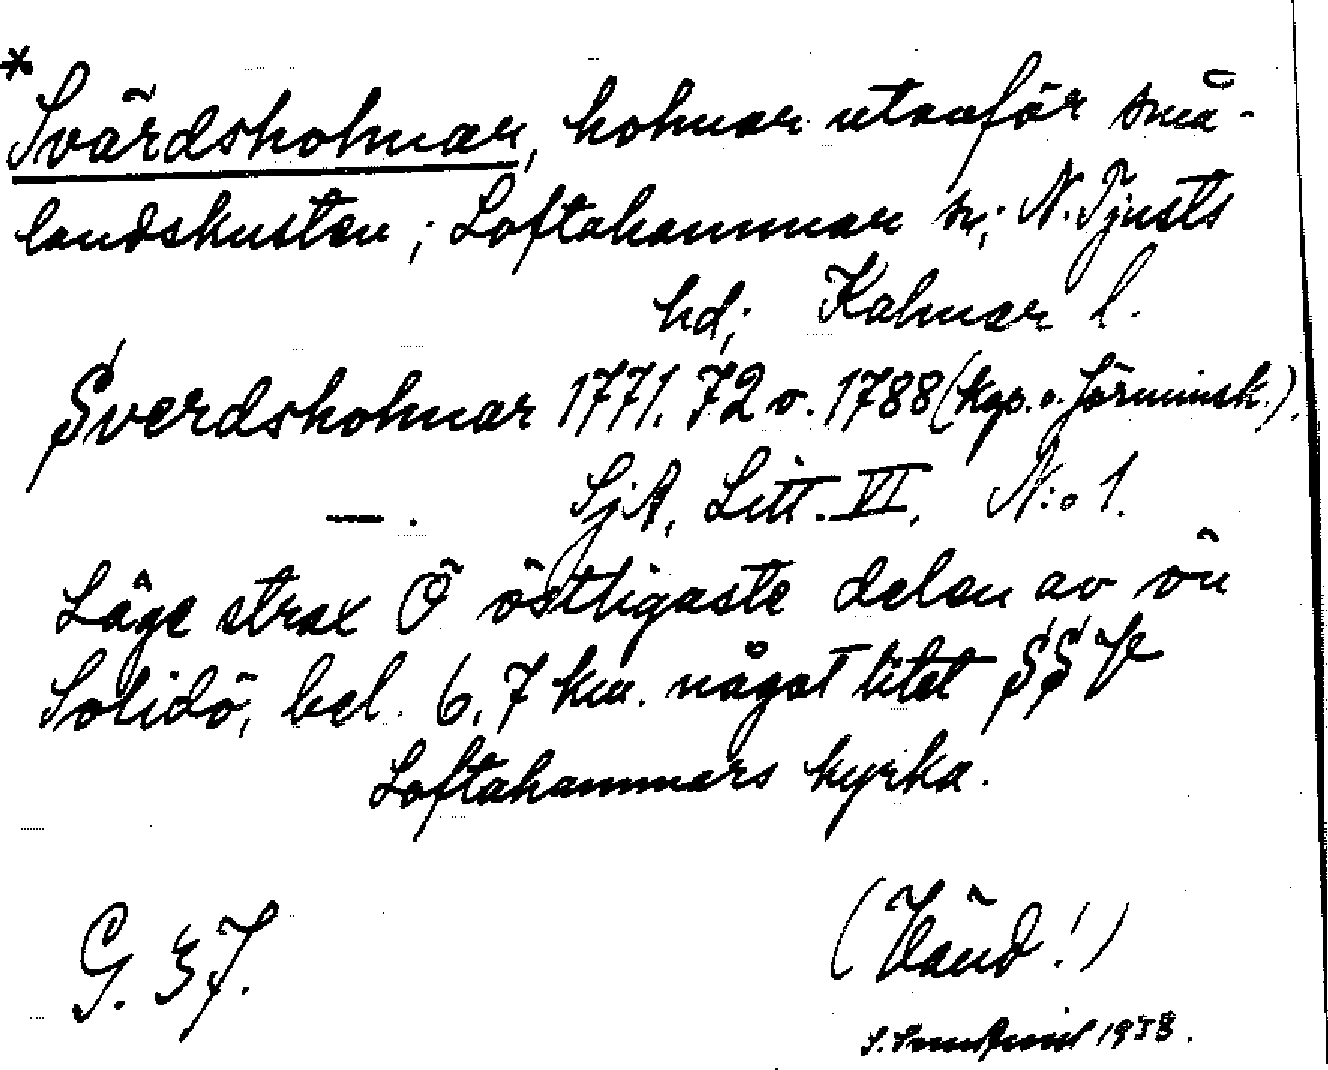 * Svärdsholmar, holmar utanför små-
landskusten; Loftahammar sn; N. Tjusts
hd; Kalmar l.
Sverdsholmar 1771. 72 o. 1788 (kop. o. förminsk.).
—. SjA, Litt. VI, N:o 1.
Läge strax Ö östligaste delen av ön
Solidö, bel. 6,7 km. något litet S
Loftahammars kyrka.
(Vänd!)
G. 37.
1938.